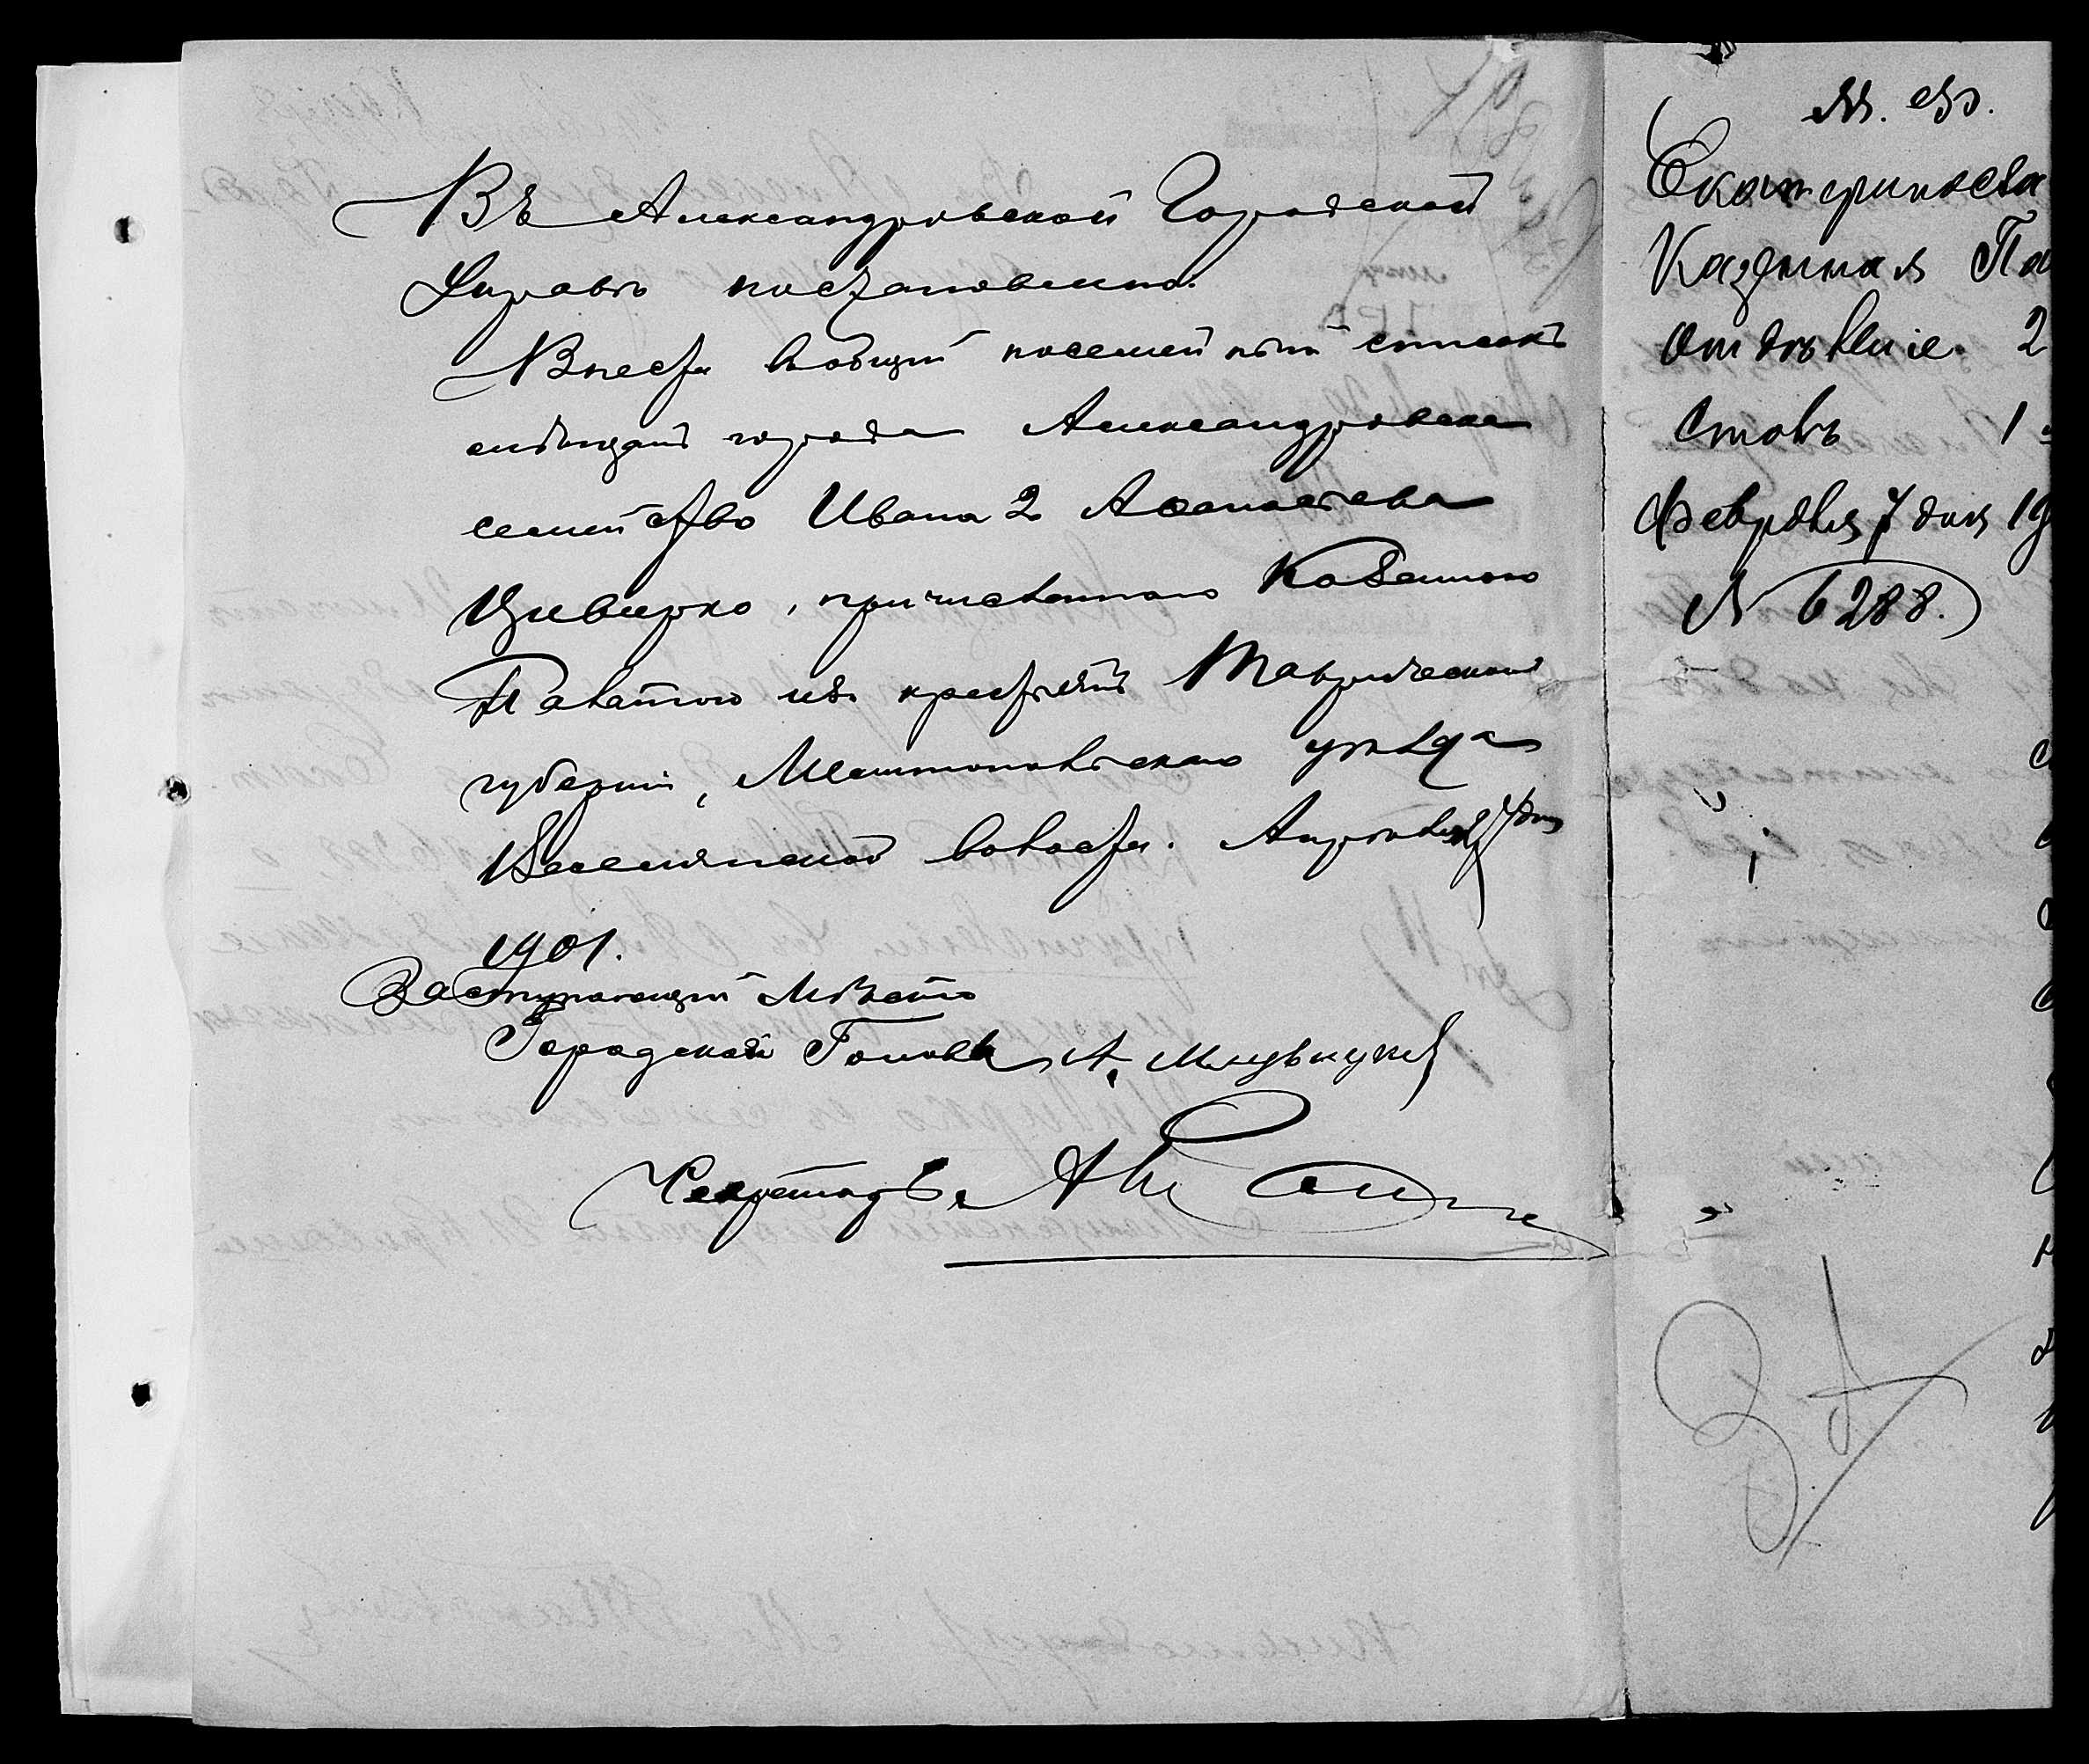 Въ Александровской Городской
Управѣ постановлено:
Внести въ общій посемейный списокъ
мѣщанъ города Александровска
семейство Ивана 2 Аѳанасьева
Цивирко, причисленнаго Казенною
Палатою изъ крестьянъ Таврической
губерніи, Мелитопольскаго уѣзда
Веселянской волости. Апрѣля 7 дня
1901.
Заступающій Мѣсто
Городской Головы А.
Секретарь
М. Ф.
Екатериносла
Казенная Па
Отдѣленіе 2
Столъ 1
Февраля 7 дня 19
№ 6288.